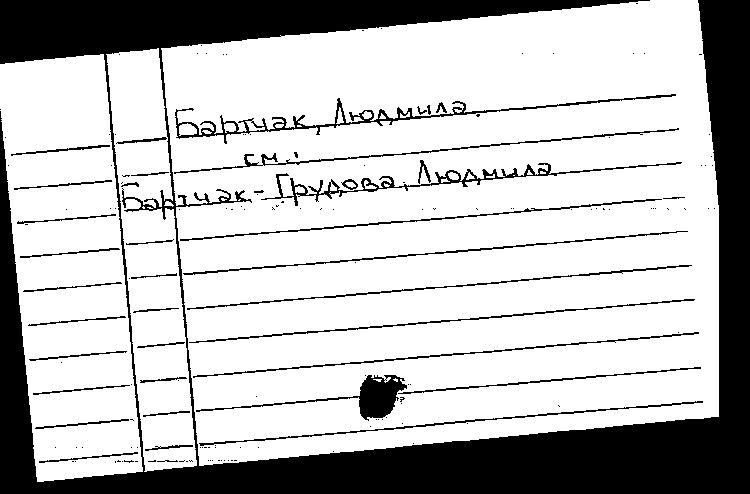 Бартчак, Людмила.
см.:
Бартчак-Грудова, Людмила